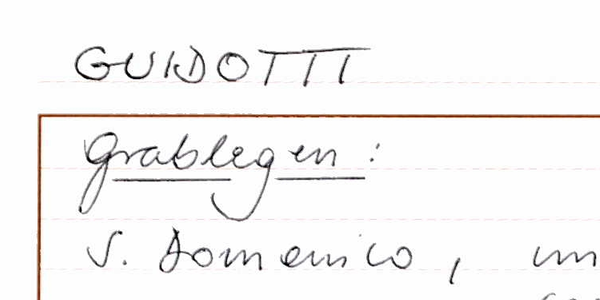 GUIDOTTI
Grablegen:
S. Domenico,